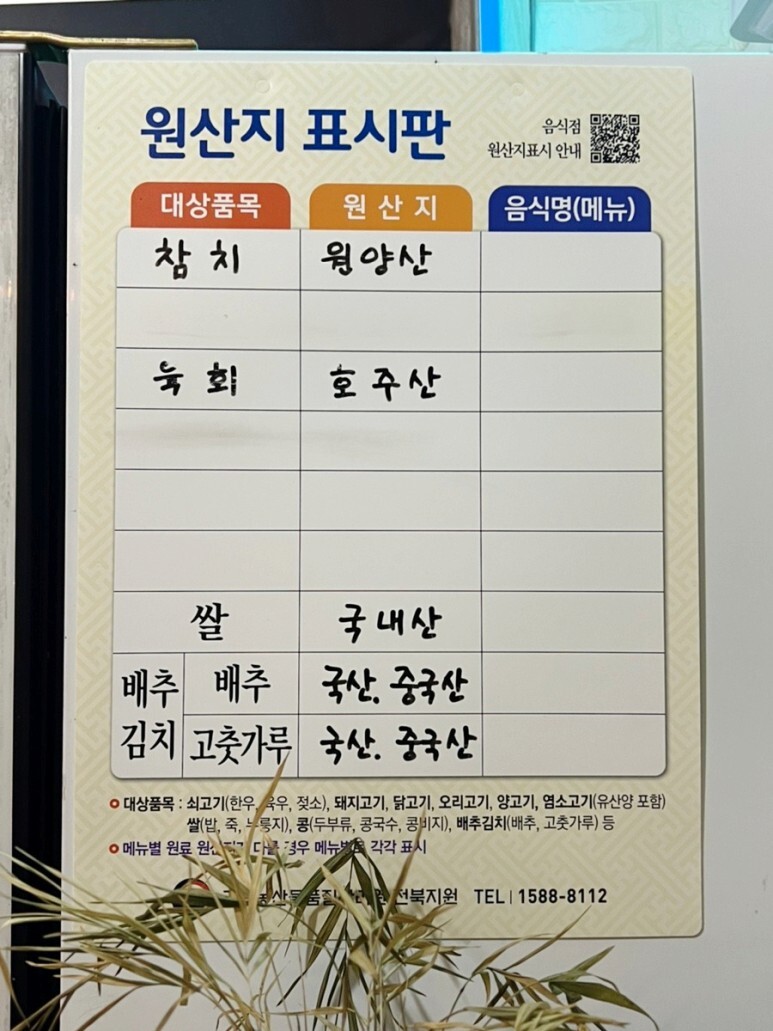 원산지 표시판
음식점
원산지표시 안내
대상품목 원산지 음식명(메뉴)
참치 원양산
육회 호주산
쌀 국내산
배추김치 배추 국산. 중국산
고춧가루 국산. 중국산
대상품목 : 쇠고기(한우, 육우, 젖소), 돼지고기, 닭고기, 오리고기, 양고기, 염소고기(유산양 포함)
쌀(밥, 죽, 누룽지), 콩(두부류, 콩국수, 콩비지), 배추김치(배추, 고춧가루) 등
메뉴별 원료 원산지가 다를 경우 메뉴별로 각각 표시
전북지원 TEL 1588-8112